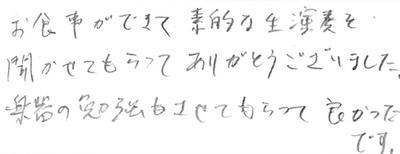 お食事ができて 素的な生演奏を
聞かせてもらって ありがとうございました。
楽器の勉強もさせてもらって 良かった
です。